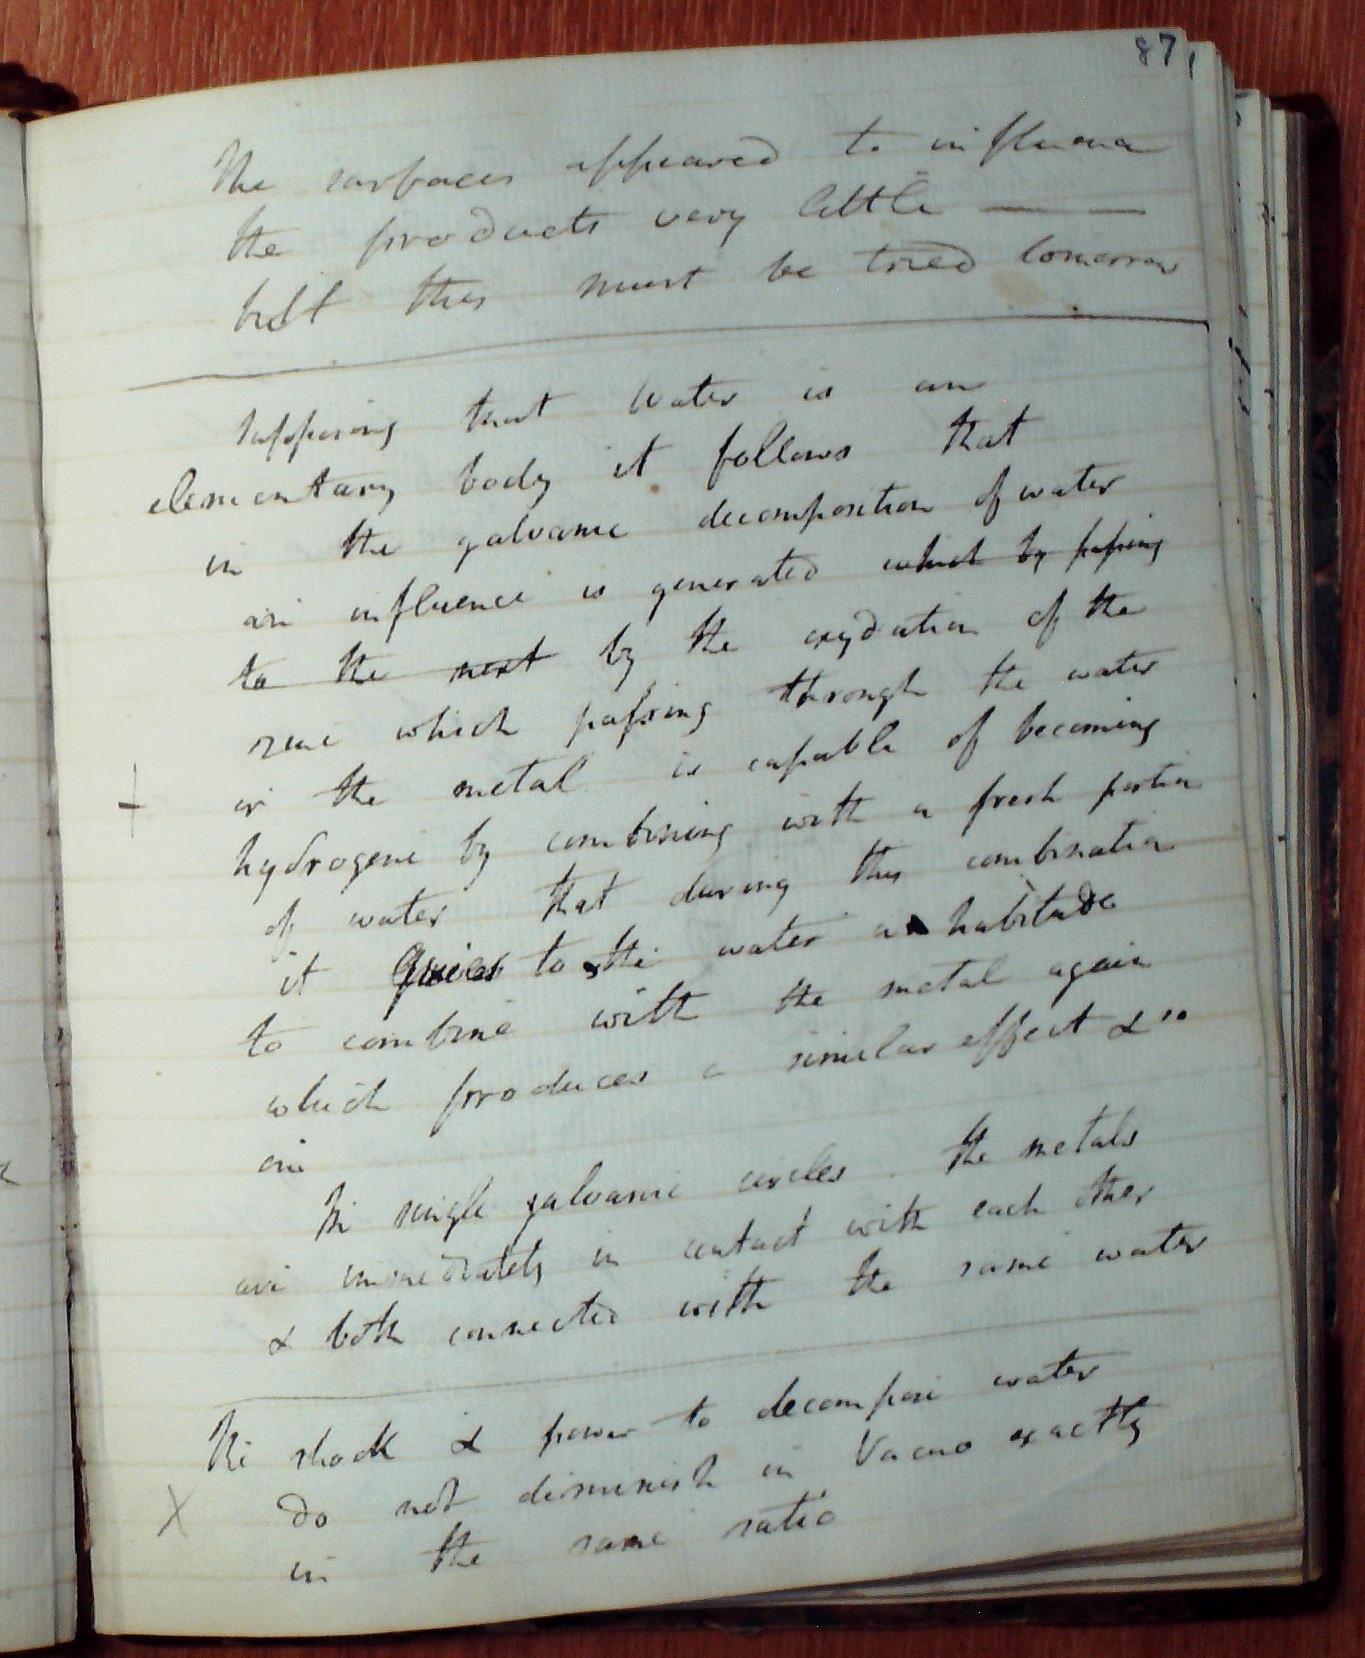 87
The surfaces appeared to influence
the products very little ——
but this must be tried tomorrow
Supposing that Water is an
elementary body it follows that
in the galvanic decomposition of water
an influence is generated which by passing
to the next by the oxydation of the
zinc which passing through the water
or the metal is capable of becoming
+
hydrogene by combining with a fresh portion
of water that during this combination
it gives to the water a habitude
to combine with the metal again
which produces a similar effect & so
on
In single galvanic circles the metals
are immediately in contact with each other
& both connected with the same water
The shock & power to decompose water
X do not diminish in Vacuo exactly
in the same ratio